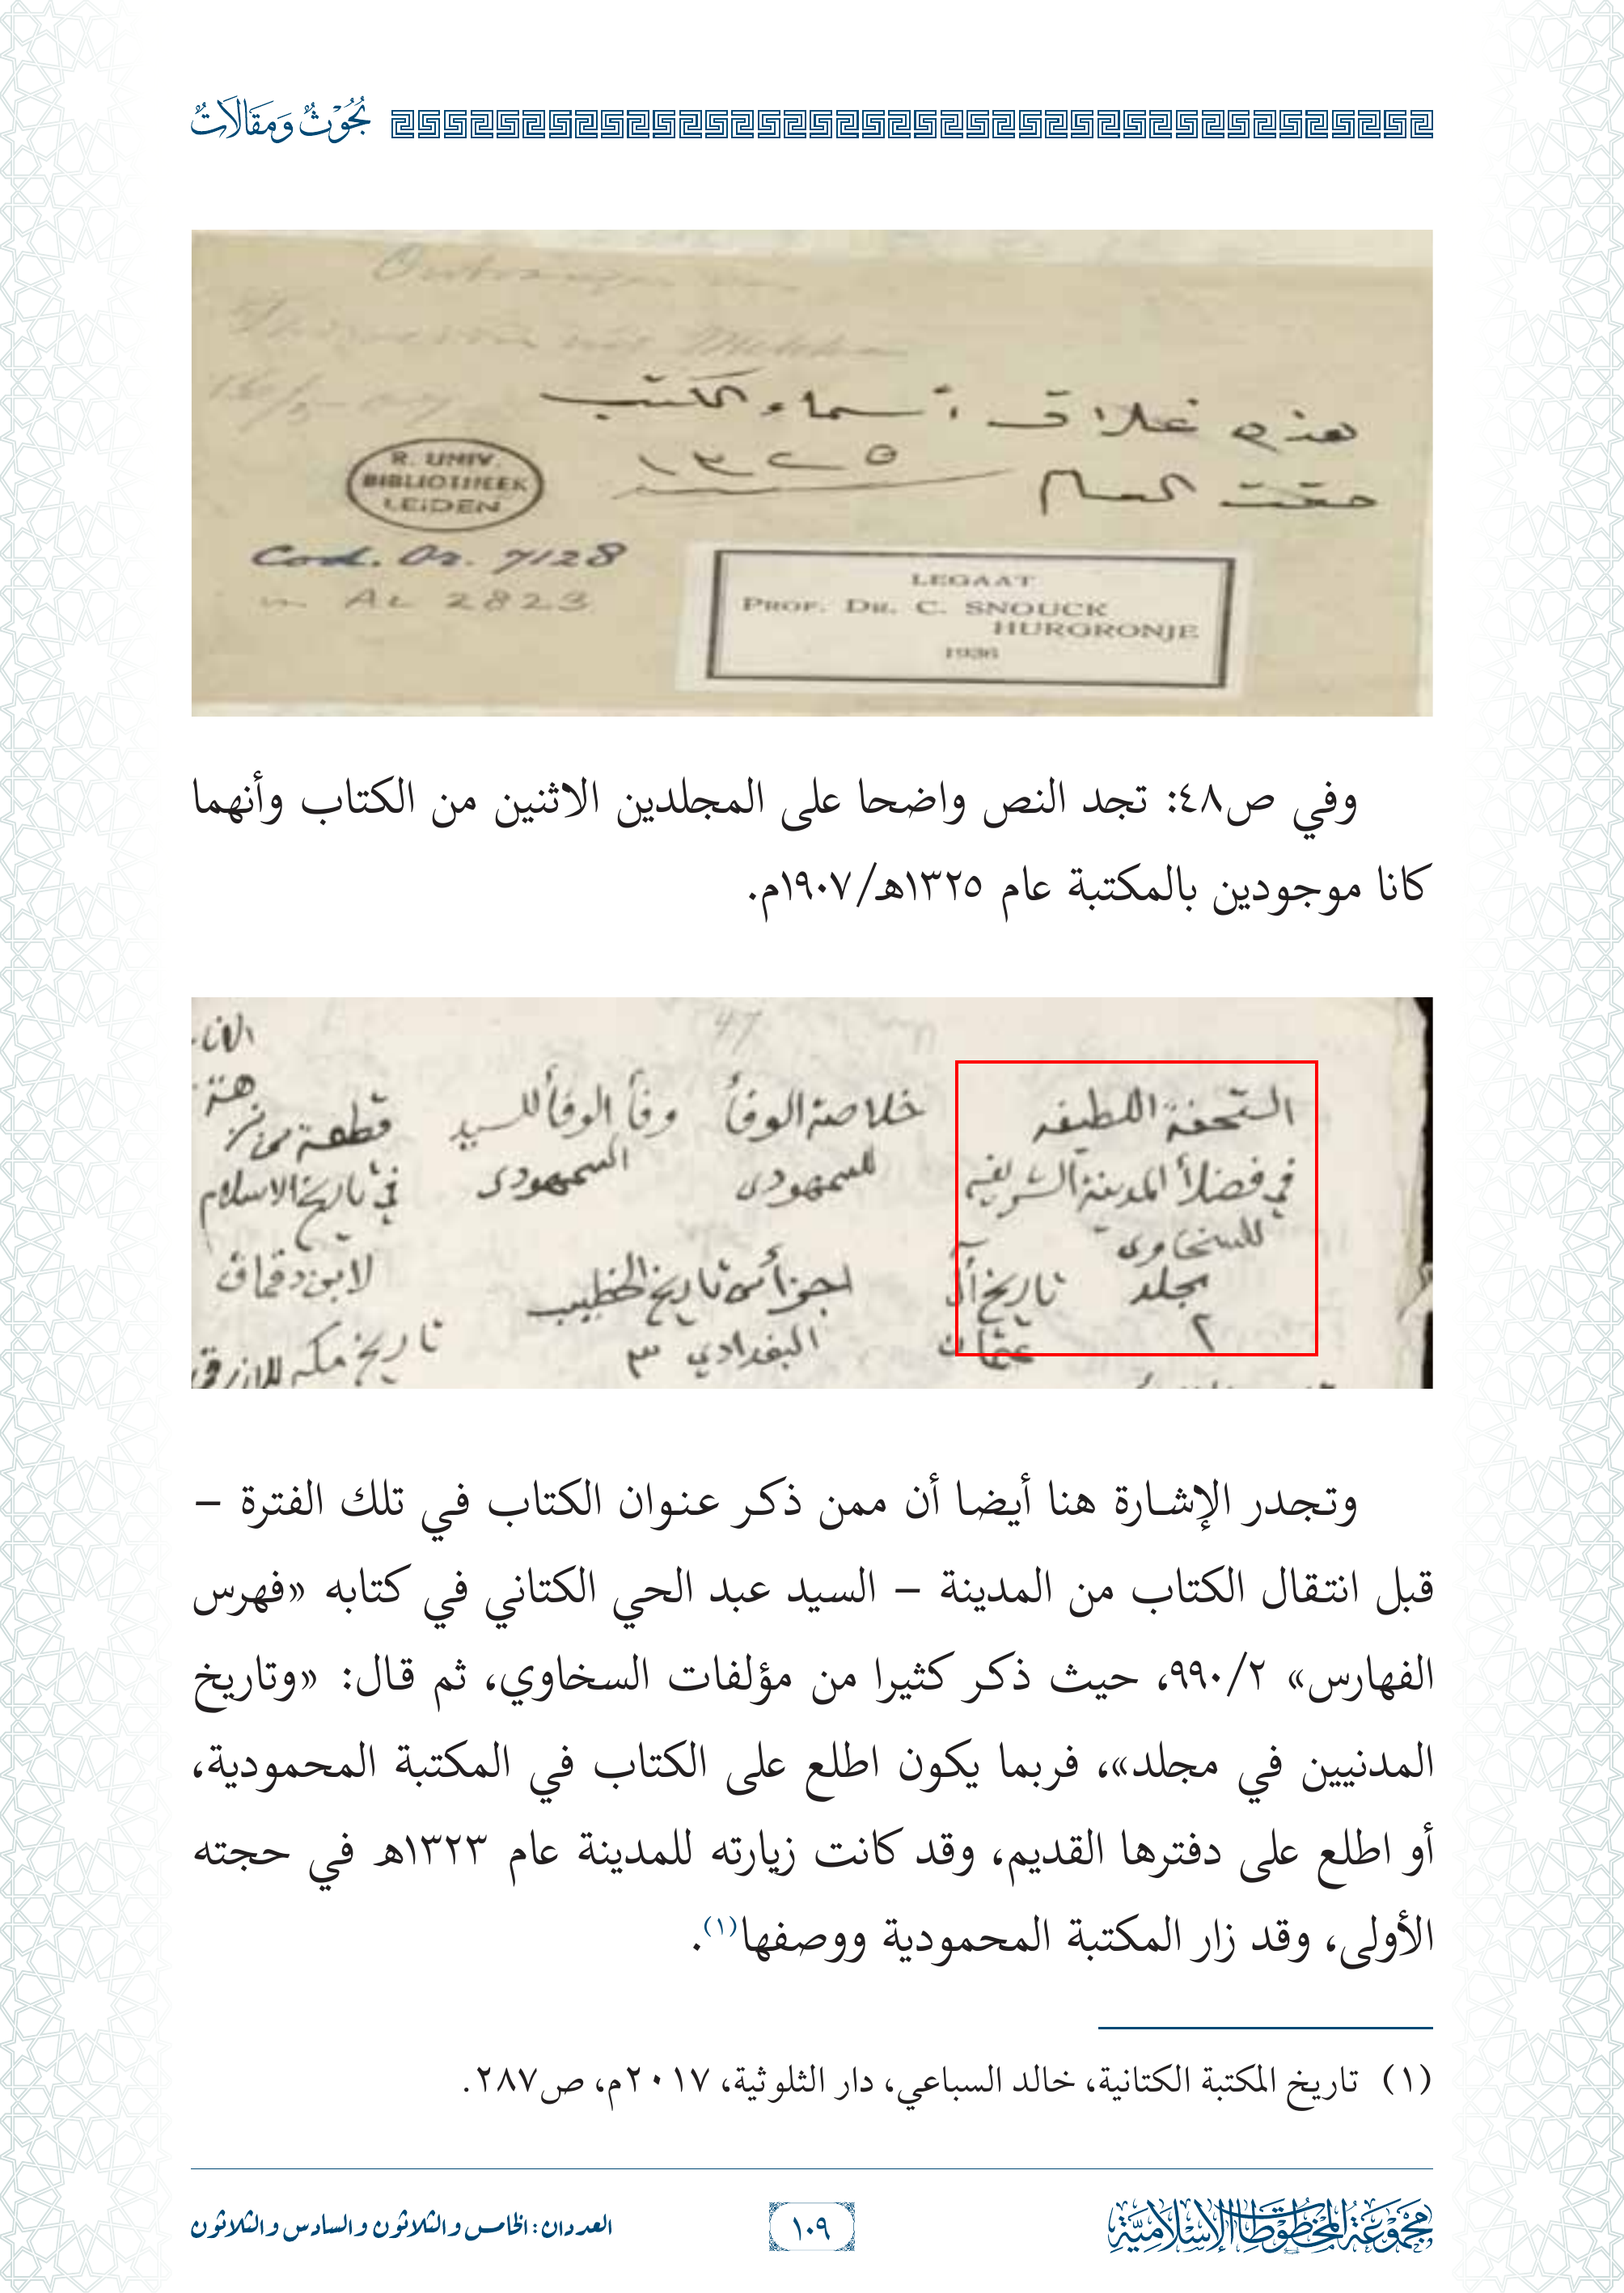 بُحُوْثٌ وَمَقَالَاتٌ
هذه غلاق أسماء الكتب
حققت العام ١٣٢٥
R. UNIV.
BIBLIOTHEEK
LEIDEN
Cod. Or. 7128
AC 2823
LEGAAT
PROF. DR. C. SNOUCK
HURGRONJE
1936
وفي ص٤٨: تجد النص واضحا على المجلدين الاثنين من الكتاب وأنهما
كانا موجودين بالمكتبة عام ١٣٢٥هـ/١٩٠٧م.
التحفة اللطيفه خلاصة الوفأ وفأ الوفأ للسيد قطعة من
في فضلأ المدينة الشريفه للسمهودى السمهودى في تاريخ الاسلام
للسخاوى
مجلد تاريخ آل اجزأ من تاريخ الخطيب لابن دقماق
٢ عثمان البغدادي ٣ تاريخ مكه للازرقي
وتجدر الإشارة هنا أيضا أن ممن ذكر عنوان الكتاب في تلك الفترة –
قبل انتقال الكتاب من المدينة – السيد عبد الحي الكتاني في كتابه «فهرس
الفهارس» ٩٩٠/٢، حيث ذكر كثيرا من مؤلفات السخاوي، ثم قال: «وتاريخ
المدنيين في مجلد»، فربما يكون اطلع على الكتاب في المكتبة المحمودية،
أو اطلع على دفترها القديم، وقد كانت زيارته للمدينة عام ١٣٢٣هـ في حجته
الأولى، وقد زار المكتبة المحمودية ووصفها(١).
(١) تاريخ المكتبة الكتانية، خالد السباعي، دار الثلوثية، ٢٠١٧م، ص٢٨٧.
مجموعة المخطوطات الإسلامية
١٠٩
العددان: الخامس والثلاثون والسادس والثلاثون